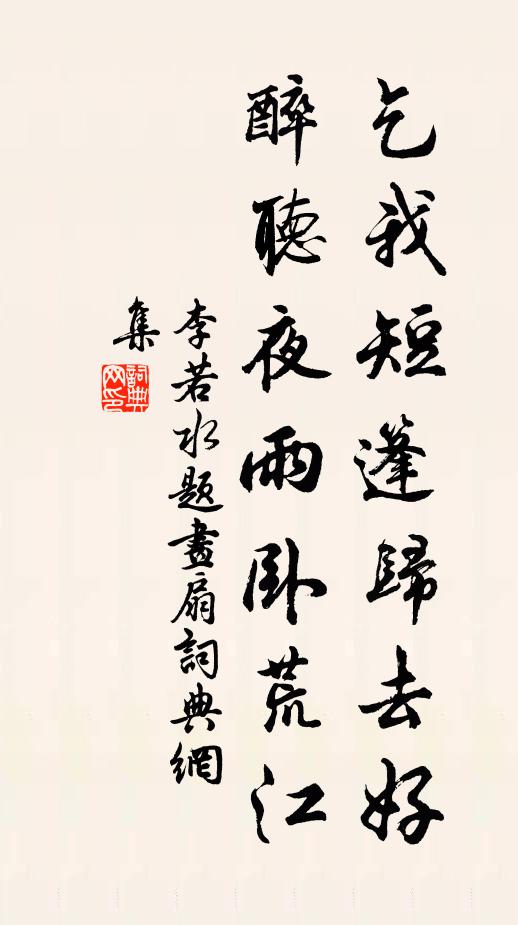 乞我短蓬歸去好
醉聽夜雨臥荒江
李若水題畫扇詞典網
集
詞典網印